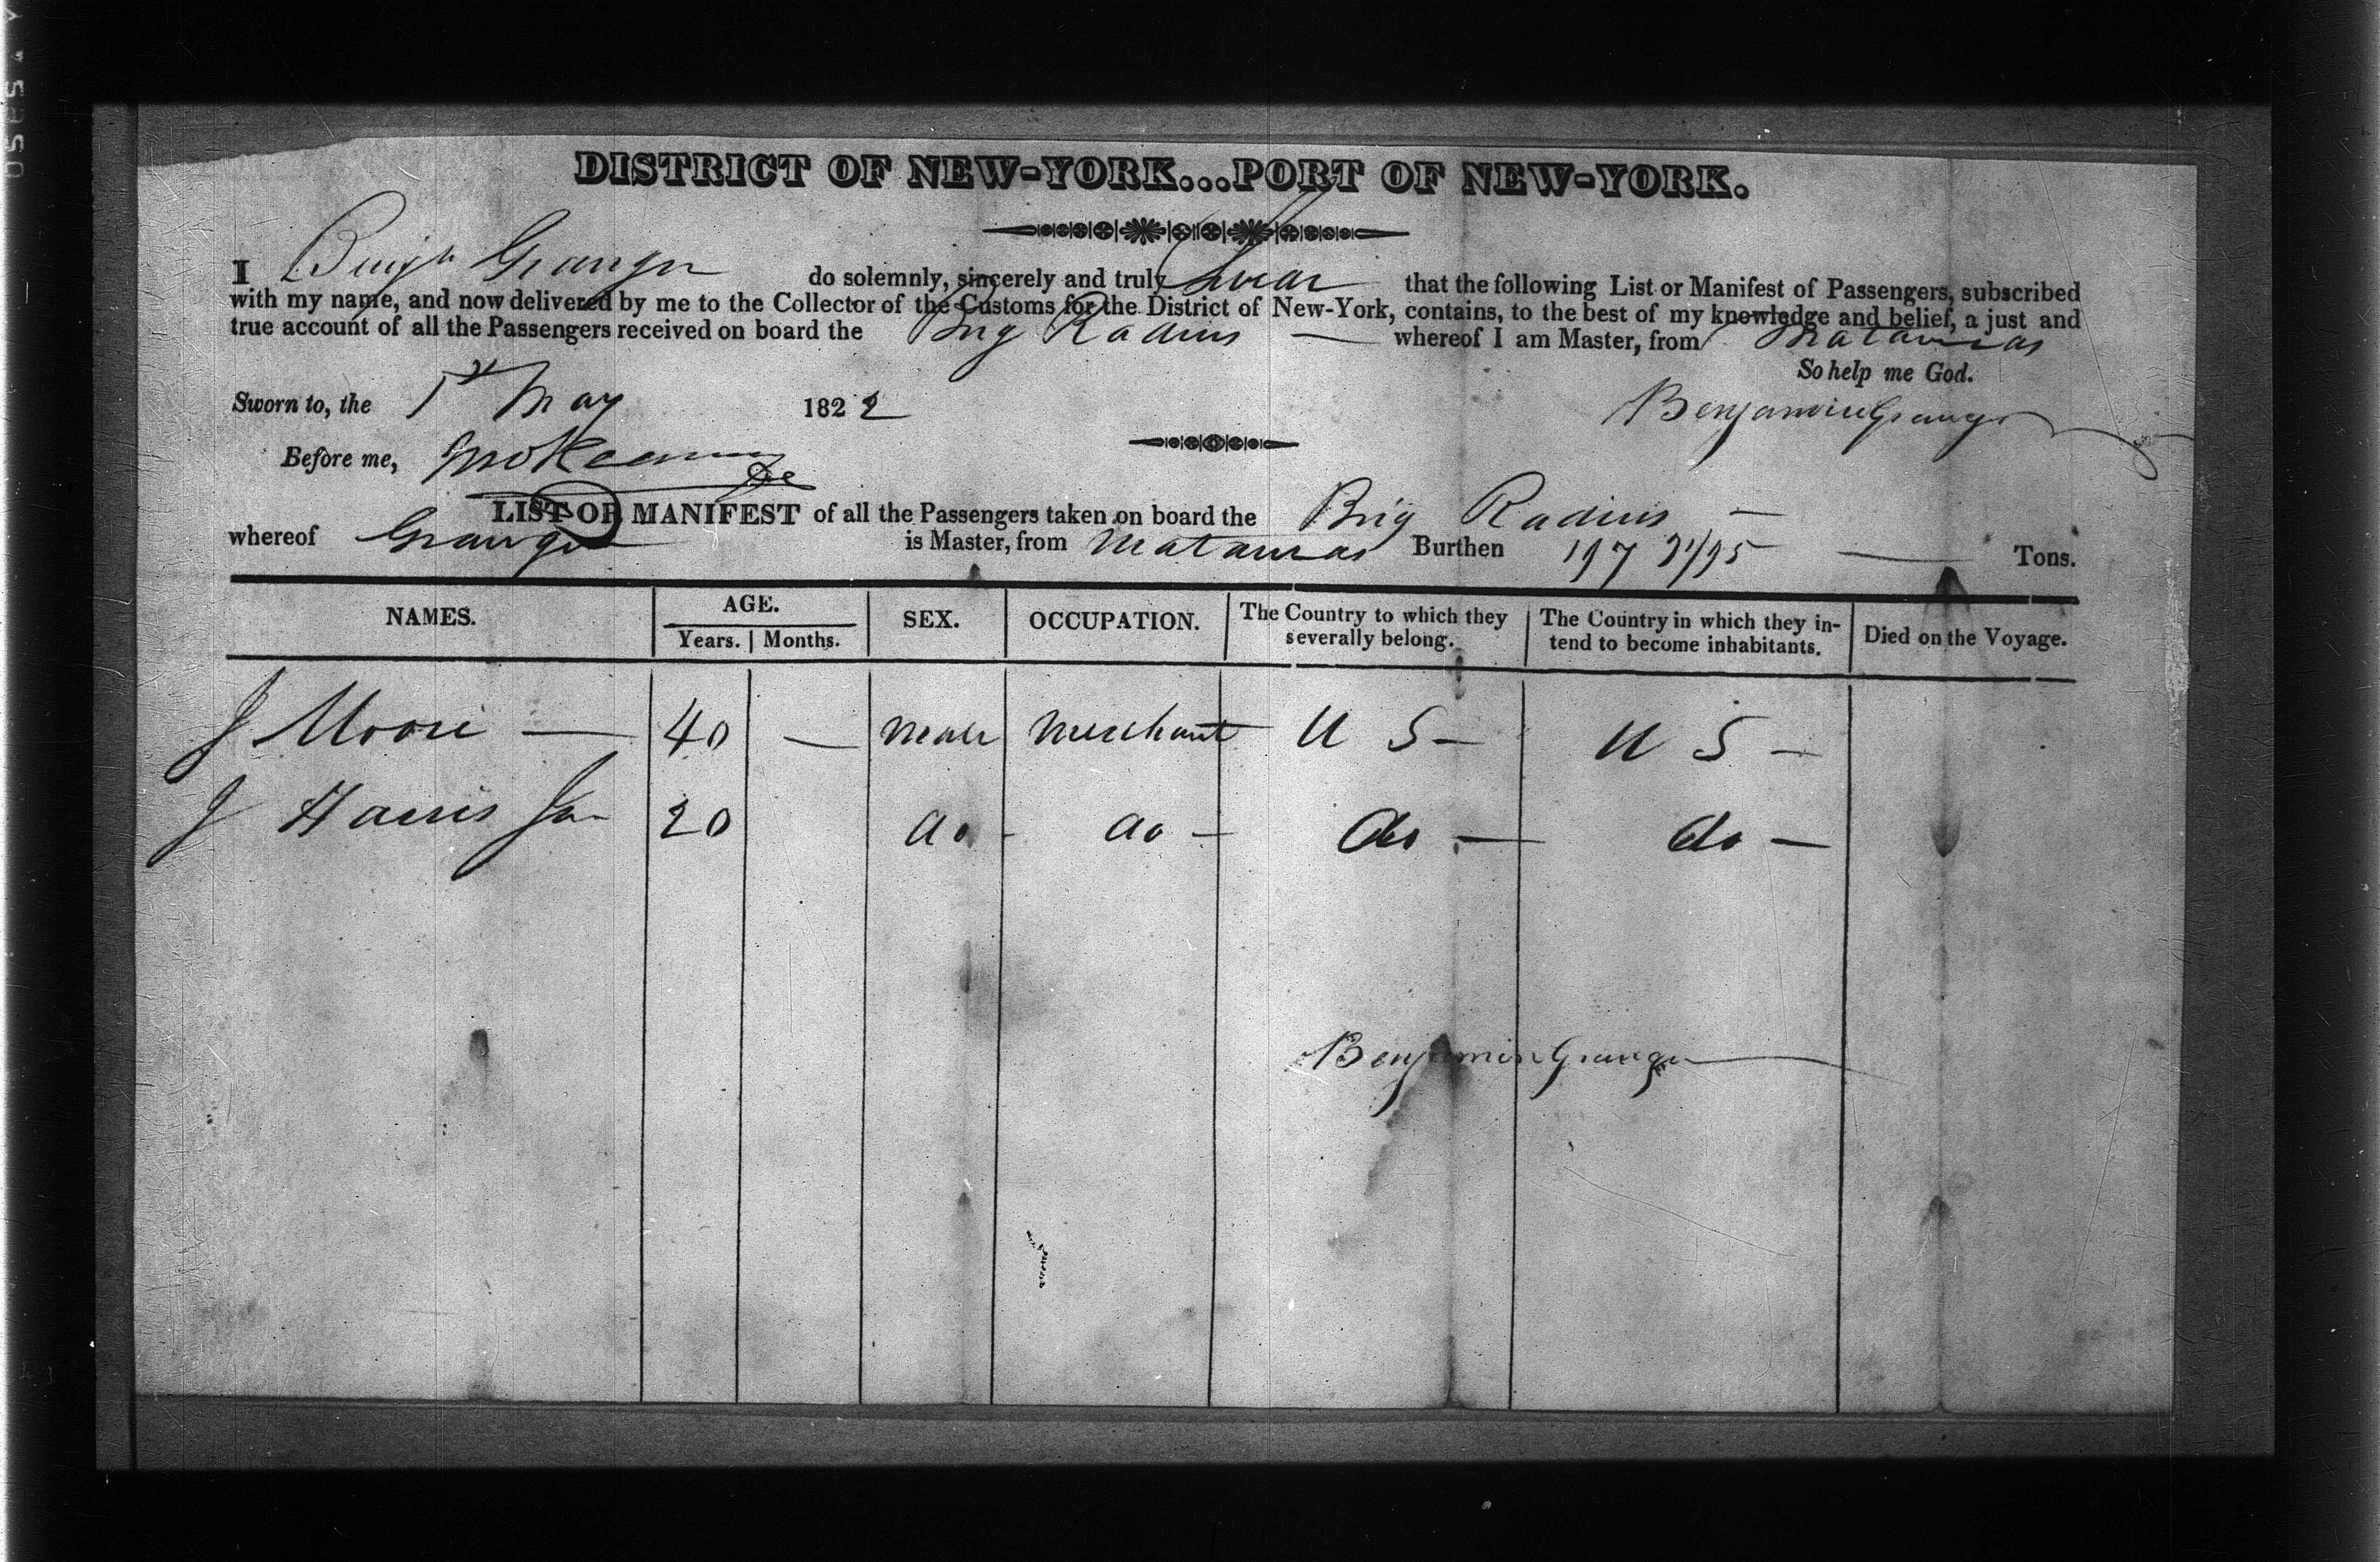 DISTRICT OF NEW-YORK...PORT OF NEW-YORK.
I Benjn Granger do solemnly, sincerely and truly Swear that the following List or Manifest of Passengers, subscribed
with my name, and now delivered by me to the Collector of the Customs for the District of New-York, contains, to the best of my knowledge and belief, a just and
true account of all the Passengers received on board the Brig Radius — whereof I am Master, from Matanzas
So help me God.
Sworn to, the 1st May 1822
Benjamin Granger
Before me,
LIST OR MANIFEST of all the Passengers taken on board the Brig Radius —
whereof Granger is Master, from Matanzas Burthen 197 — Tons.
NAMES. AGE. SEX. OCCUPATION. The Country to which they severally belong. The Country in which they in- tend to become inhabitants. Died on the Voyage.
Years. Months.
J Moore — 40 — Male Merchant U S — U S —
J Harris Jr 20 do - do - do — do —
Benjamin Granger